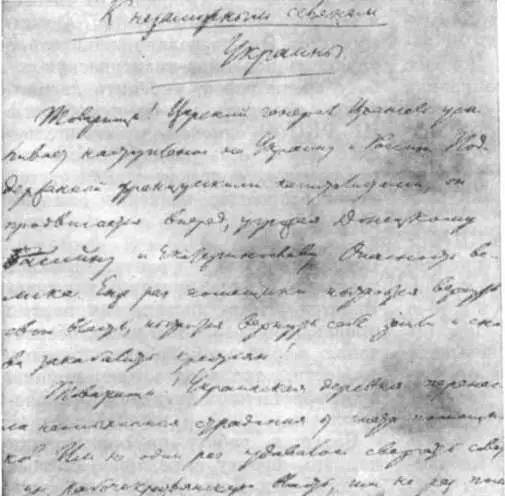 К незаможным селянам
Украины
Товарищи! Царский генерал Врангель уси-
ливает наступление на Украину и Россию. Под-
держанный французскими капиталистами, он
продвигается вперед, угрожая Донецкому
бассейну и Екатеринославу. Опасность ве-
лика. Еще раз помещики пытаются вернуть
свою власть, пытаются вернуть себе земли и сно-
ва закабалить крестьян!
Товарищи! Украинская деревня перенес-
ла неслыханные страдания от гнета помещи-
ков. Им не один раз удавалось свергать сове-
рабоче-крестьянскую власть, им не раз